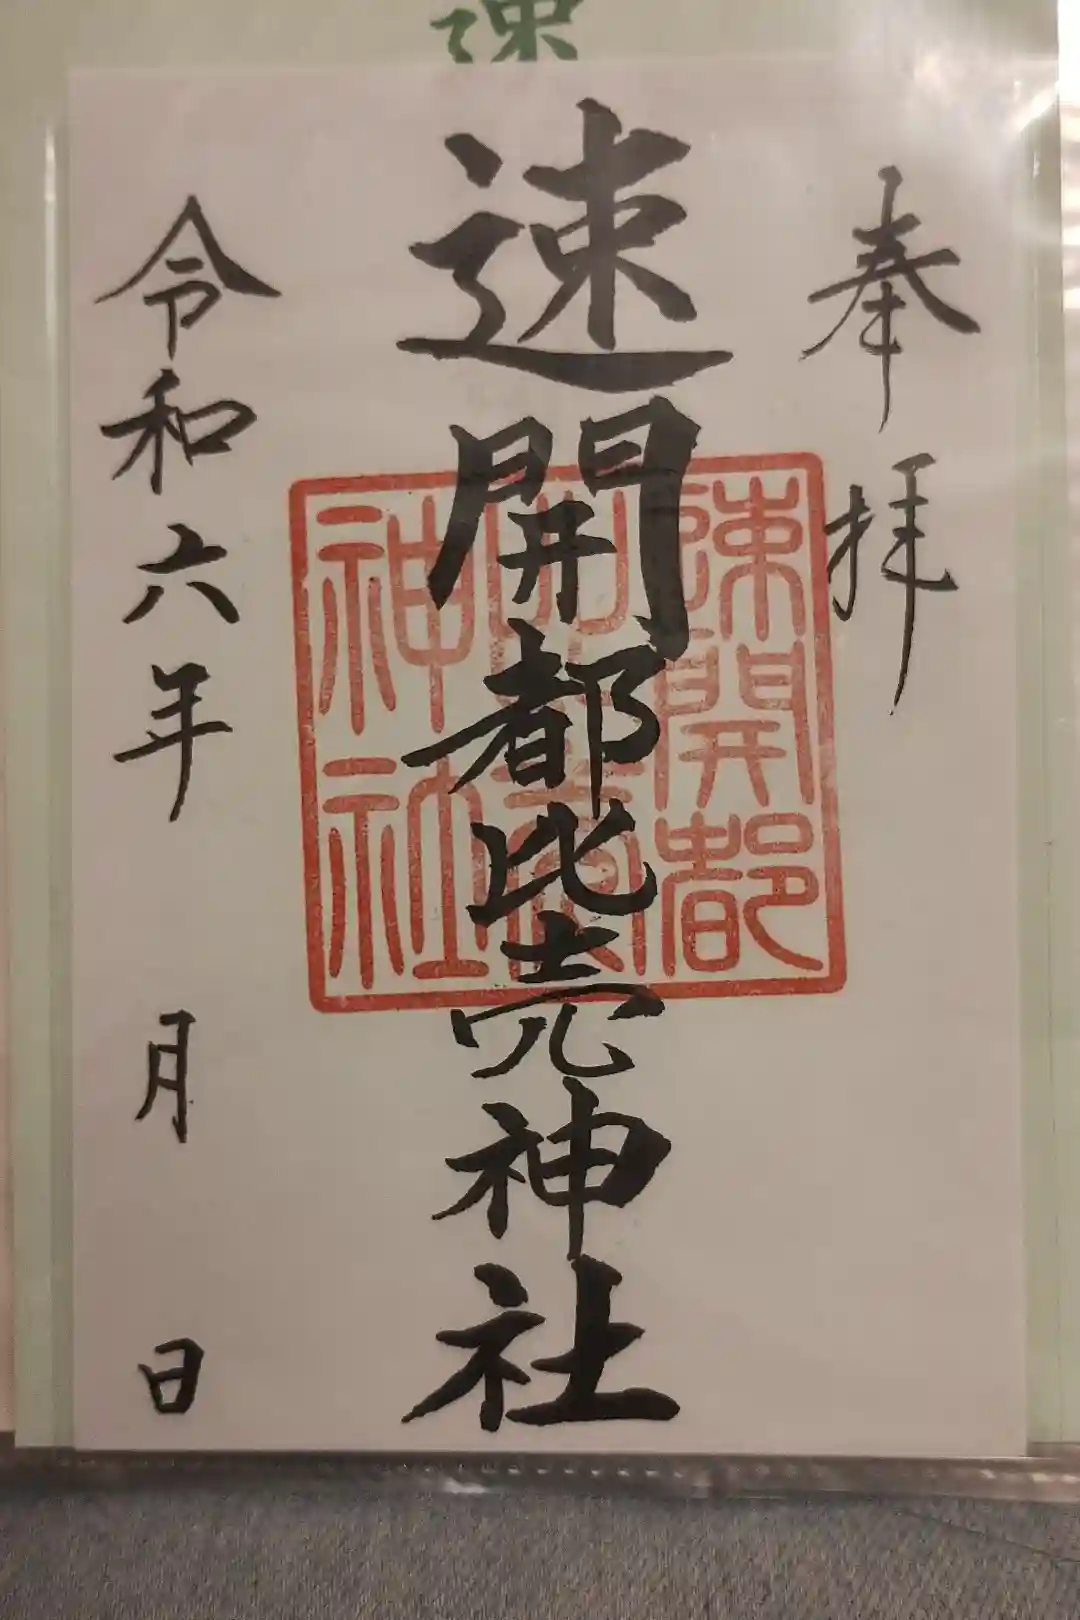 速
奉拝
速開都比売神社
速開都
神社
令和六年 月 日